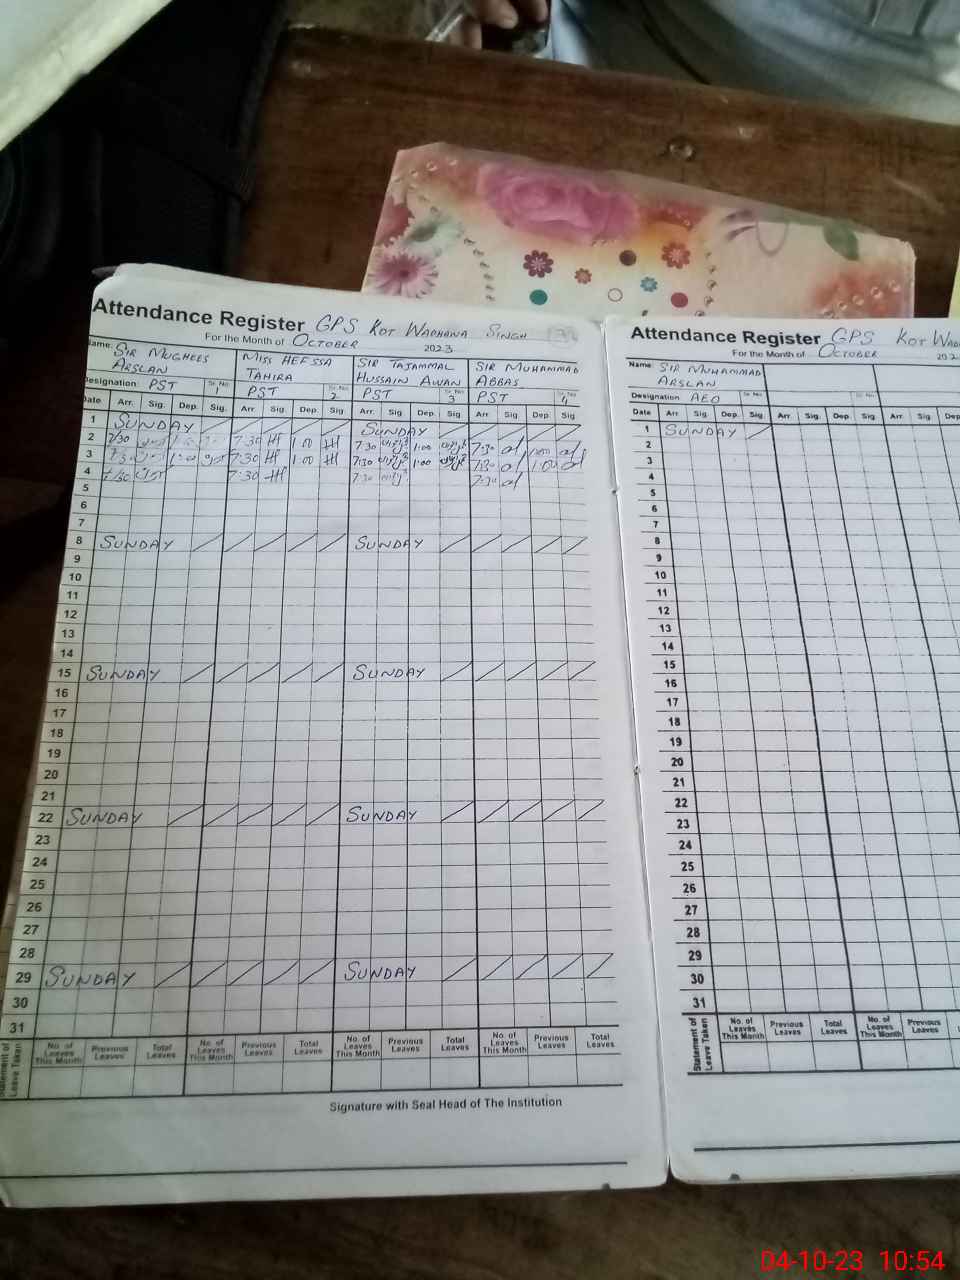 Attendance Register GPS KOT WADHANA SINGH
For the Month of OCTOBER 2023
Name: SIR MUGHEES ARSLAN MISS HEFSSA TAHIRA SIR TAJAMMAL HUSSAIN AWAN SIR MUHAMMAD ABBAS
Designation: PST Sr. No. 1 PST Sr. No. 2 PST Sr. No. 3 PST Sr. No. 4
Date Arr. Sig. Dep. Sig. Arr. Sig. Dep. Sig. Arr. Sig. Dep. Sig. Arr. Sig. Dep. Sig
1 SUNDAY SUNDAY
2 7:30 7:30 Hf 1:00 Hf 7:30 1:00 7:30 1:00
3 7:30 1:00 7:30 Hf 1:00 Hf 7:30 1:00 7:30 1:00
4 7:30 7:30 Hf 7:30 7:30
5
6
7
8 SUNDAY SUNDAY
9
10
11
12
13
14
15 SUNDAY SUNDAY
16
17
18
19
20
21
22 SUNDAY SUNDAY
23
24
25
26
27
28
29 SUNDAY SUNDAY
30
31
Statement of Leave Taken No. of Leaves This Month Previous Leaves Total Leaves No. of Leaves This Month Previous Leaves Total Leaves No. of Leaves This Month Previous Leaves Total Leaves No. of Leaves This Month Previous Leaves Total Leaves
Signature with Seal Head of The Institution
Attendance Register GPS KOT
For the Month of OCTOBER
Name: SIR MUHAMMAD ARSLAN
Designation AEO Sr. No. Sr. No.
Date Arr. Sig. Dep. Sig. Arr. Sig. Dep. Sig. Arr. Sig. Dep
1 SUNDAY
2
3
4
5
6
7
8
9
10
11
12
13
14
15
16
17
18
19
20
21
22
23
24
25
26
27
28
29
30
31
Statement of Leave Taken No. of Leaves This Month Previous Leaves Total Leaves No. of Leaves This Month Previous Leaves
04-10-23 10:54